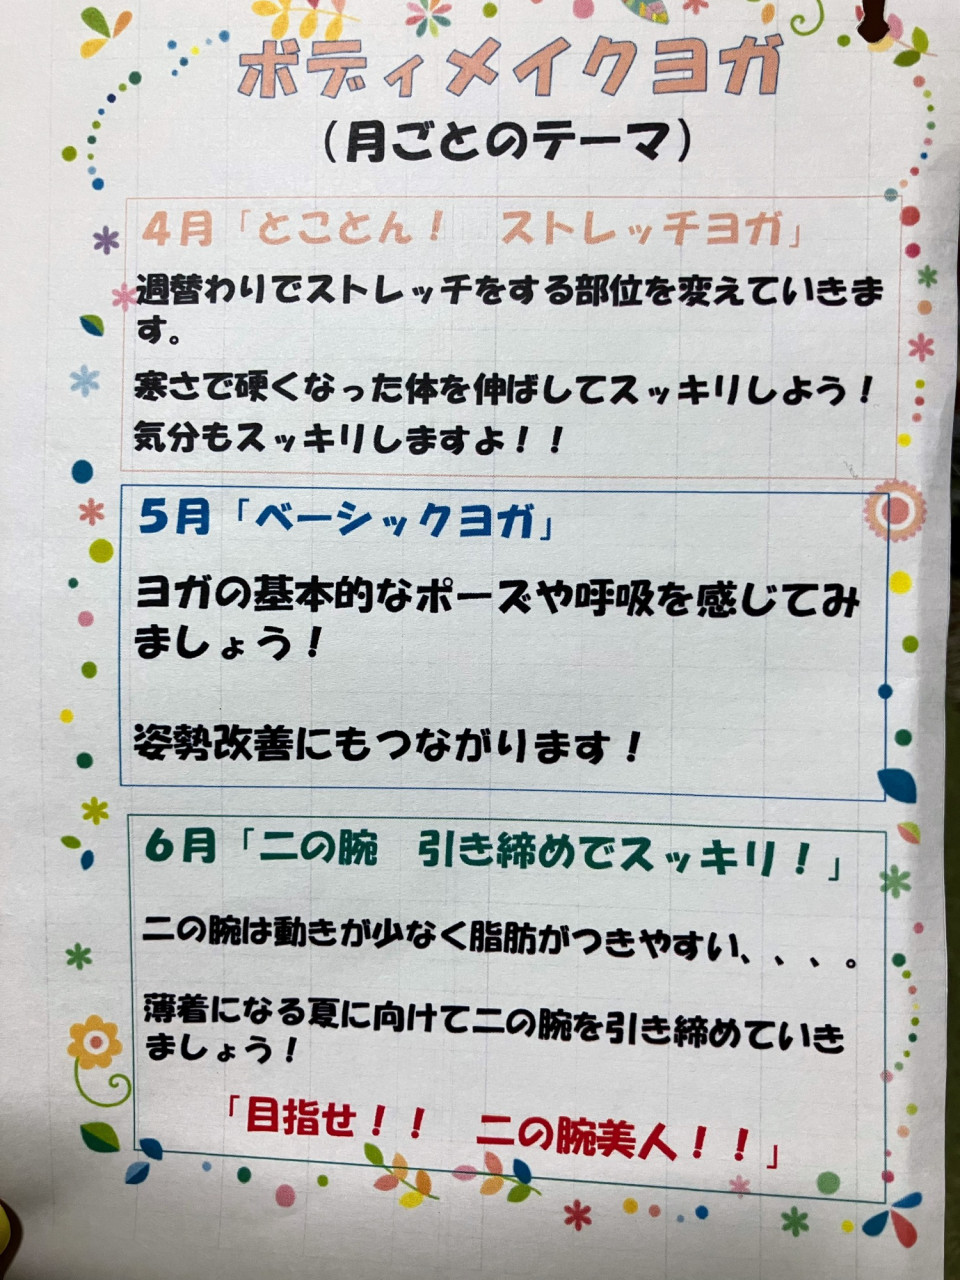 ボディメイクヨガ
（月ごとのテーマ）
４月「とことん！　ストレッチヨガ」
週替わりでストレッチをする部位を変えていきま
す。
寒さで硬くなった体を伸ばしてスッキリしよう！
気分もスッキリしますよ！！
５月「ベーシックヨガ」
ヨガの基本的なポーズや呼吸を感じてみ
ましょう！
姿勢改善にもつながります！
６月「二の腕　引き締めでスッキリ！」
二の腕は動きが少なく脂肪がつきやすい、、、。
薄着になる夏に向けて二の腕を引き締めていき
ましょう！
「目指せ！！　二の腕美人！！」